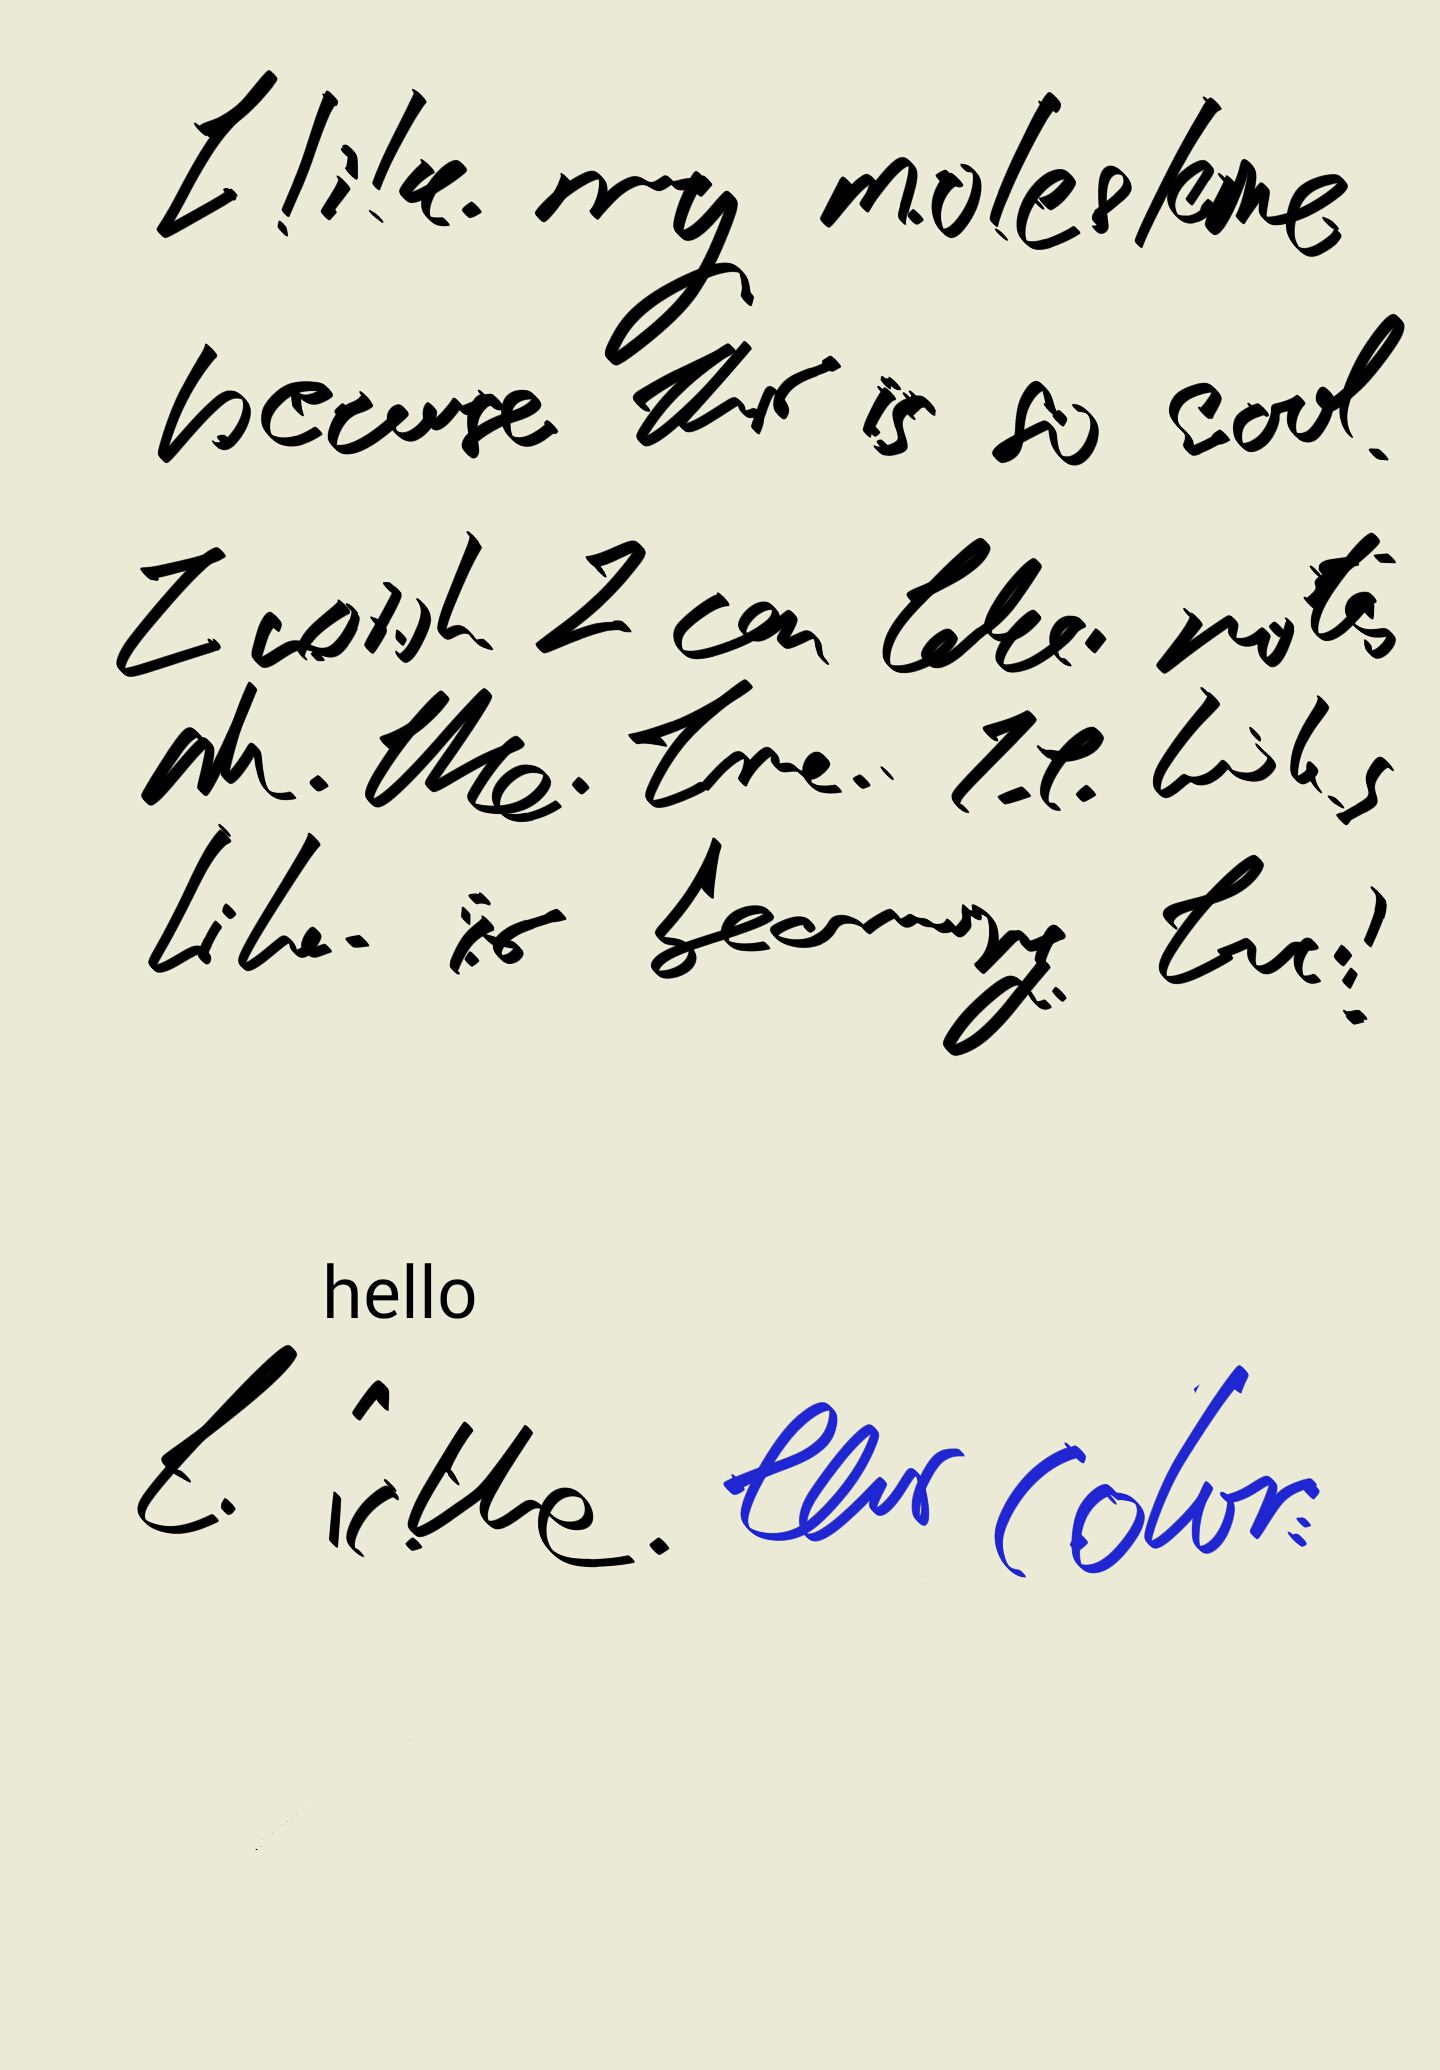 I like my moleskine
because this is so cool.
I wish I can take notes
all the time. It looks
like is learning time!
hello
I like this color